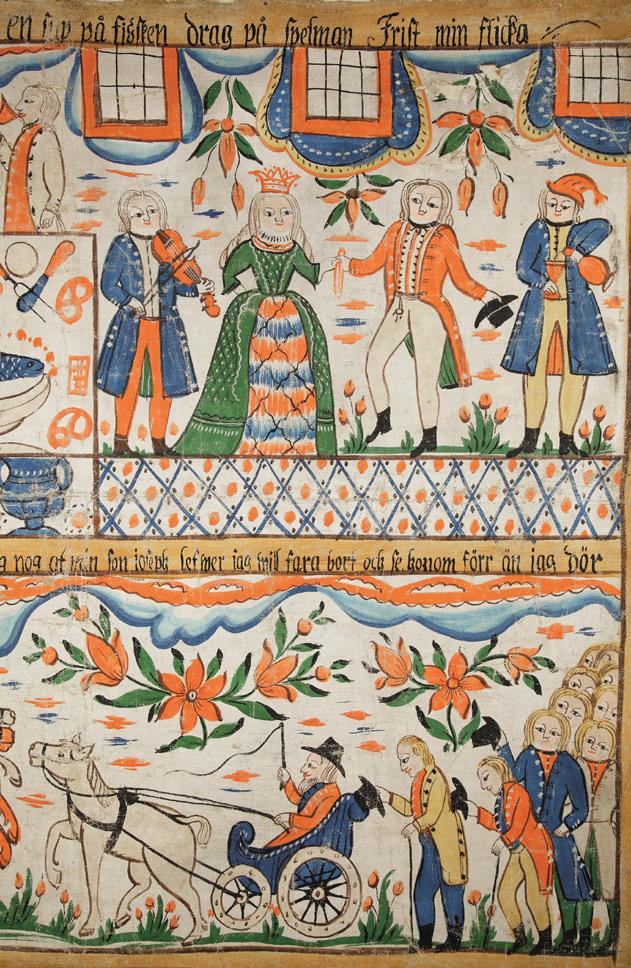 en sup på fisken drag på spelman Frist min flicka
g nog at min son joseph lefwer jag will fara bort och se honom förr än jag dör